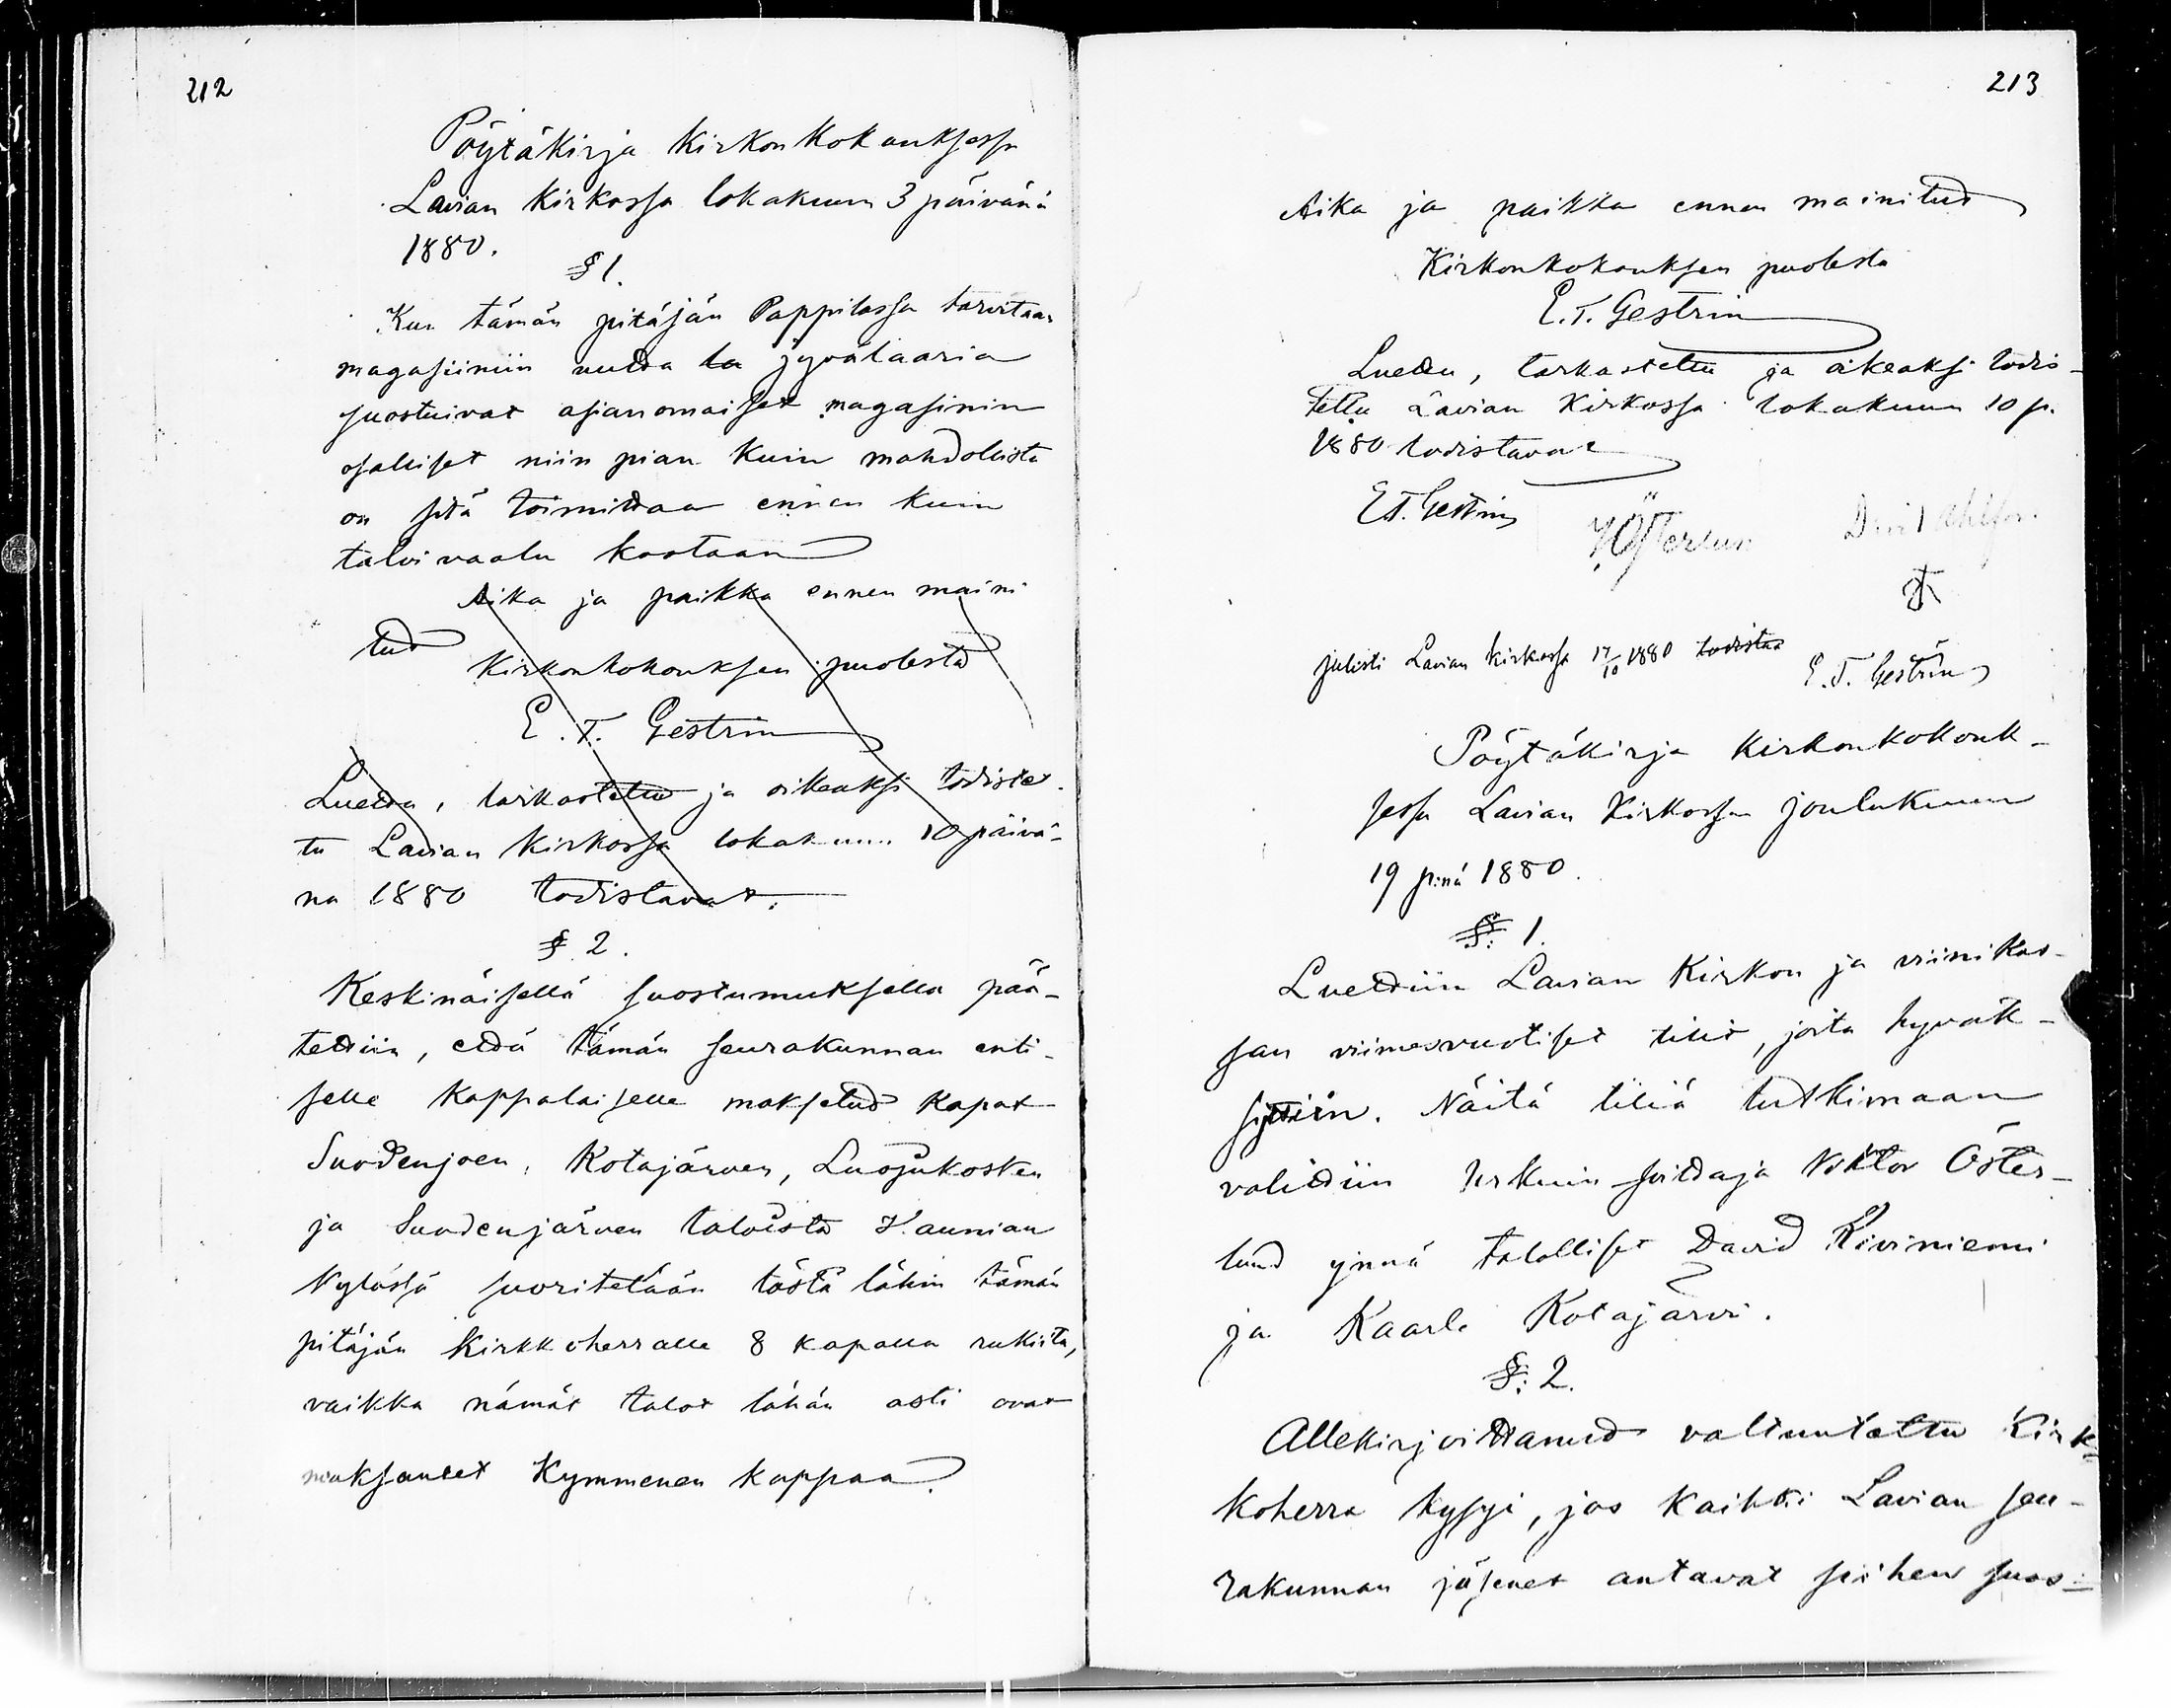 212
Pöytäkirja Kirkonkokouksessa
Lavian Kirkossa lokakuun 3 päivänä
1880.
§ 1.
Kun tämän pitäjän Pappilassa tarvitaan
magasiiniin uutta la jyvälaaria
suostuivat asianomaiset magasinin
osalliset niin pian kuin mahdollista
on sitä toimittaa ennen kuin
talvi vaalu kootaan
Aika ja paikka ennen maini
tud
Kirkonkokouksen puolesta
E. T. Gestrin
Luettu, tarkastettu ja oikeaksi todiste
tu Lavian Kirkossa lokakuun 10 päivä-
nä 1880 todistavat.
§ 2.
Keskinäisellä suostumuksella pää-
tettiin, että tämän seurakunnan enti-
selle Kappalaiselle maksetud Kapat
Suodenjoen, Kotajärven, Luojukosken
ja Suodenjärven taloista Kaunian
Kylässä suoritetaan tästä lähin tämän
pitäjän Kirkkoherralle 8 kapalla rukiita,
vaikka nämät talot tähän asti ovat
maksaneet Kymmenen kappaa.
213
Aika ja paikka ennen mainitud
Kirkonkokouksen puolesta
E. T. Gestrin
Luettu, tarkastettu ja oikeaksi todis-
tettu Lavian Kirkossa lokakuun 10 p.
1880 todistavat
E. T. Gestrin
V. Österlun David Ahlfors
julisti Lavian kirkossa 17/10 1880 todistaa
E. T. Gestrin
Pöytäkirja Kirkonkokouk-
sessa Lavian Kirkossa joulukuun
19 p:nä 1880.
§: 1.
Luettiin Lavian Kirkon ja viinikas-
san viimesvuotiset tilit, joita hyväk-
syttiin. Näitä tiliä tutkimaan
valittiin Urkuin soittaja Viktor Öster-
lund ynnä talolliset David Kiviniemi
ja Kaarle Kotajärvi.
§: 2.
Allekirjoittanud valtuutettu Kirk-
koherra kysyi, jos kaikki Lavian seu-
rakunnan jäsenet antavat siihen suos-